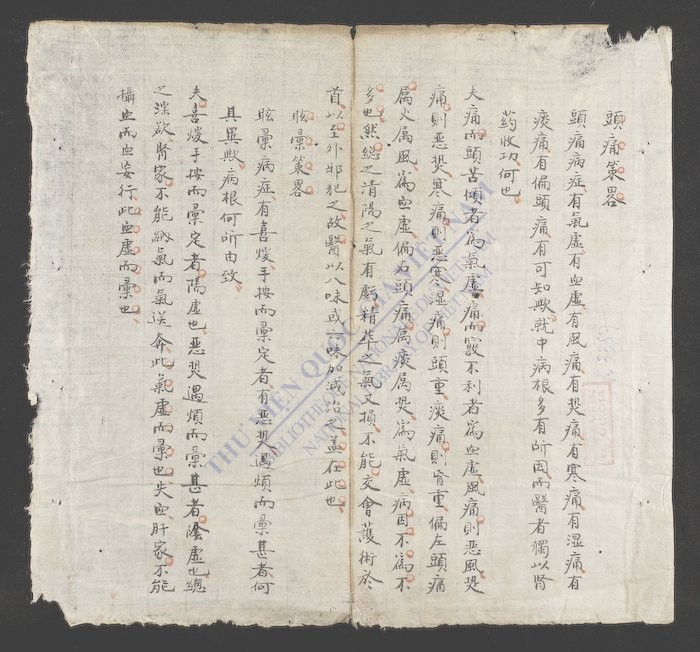 頭痛策畧
頭痛病症有氣虛有血虛有風痛有𤍠痛有寒痛有湿痛有
痰痛有偏頭痛有可知欤就中病根多有所因而醫者獨以腎
药收功何也
夫痛而頭苦傾者為氣虛痛而竅不利者為血虛風痛則惡風𤍠
痛則惡𤍠寒痛則惡寒湿痛則頭重痰痛則旨重偏左頭痛
属火属風為血虛偏右頭痛属痰属𤍠為氣虛病因不為不
多也然總之清陽之氣有虧精華之氣又損不能交會護術於
首以至外邪犯之故醫以八味或六味加减治之盖在此也
眩彙策畧
眩彙病症有喜煖手按而彙定者有惡𤍠遇煩而彙甚者何
其異欤病根何所由致
夫喜煖手按而彙定者陽虛也惡𤍠遇煩而彙甚者陰虛也總
之淫欲腎家不能納氣而氣送奔此氣虛而彙也失血肝家不能
攝血而血妄行此血虛而彙也
2
THƯ VIỆN QUỐC GIA VIỆT NAM
BIBLIOTHÈQUE NATIONALE DU VIETNAM
NATIONAL LIBRARY OF VIETNAM